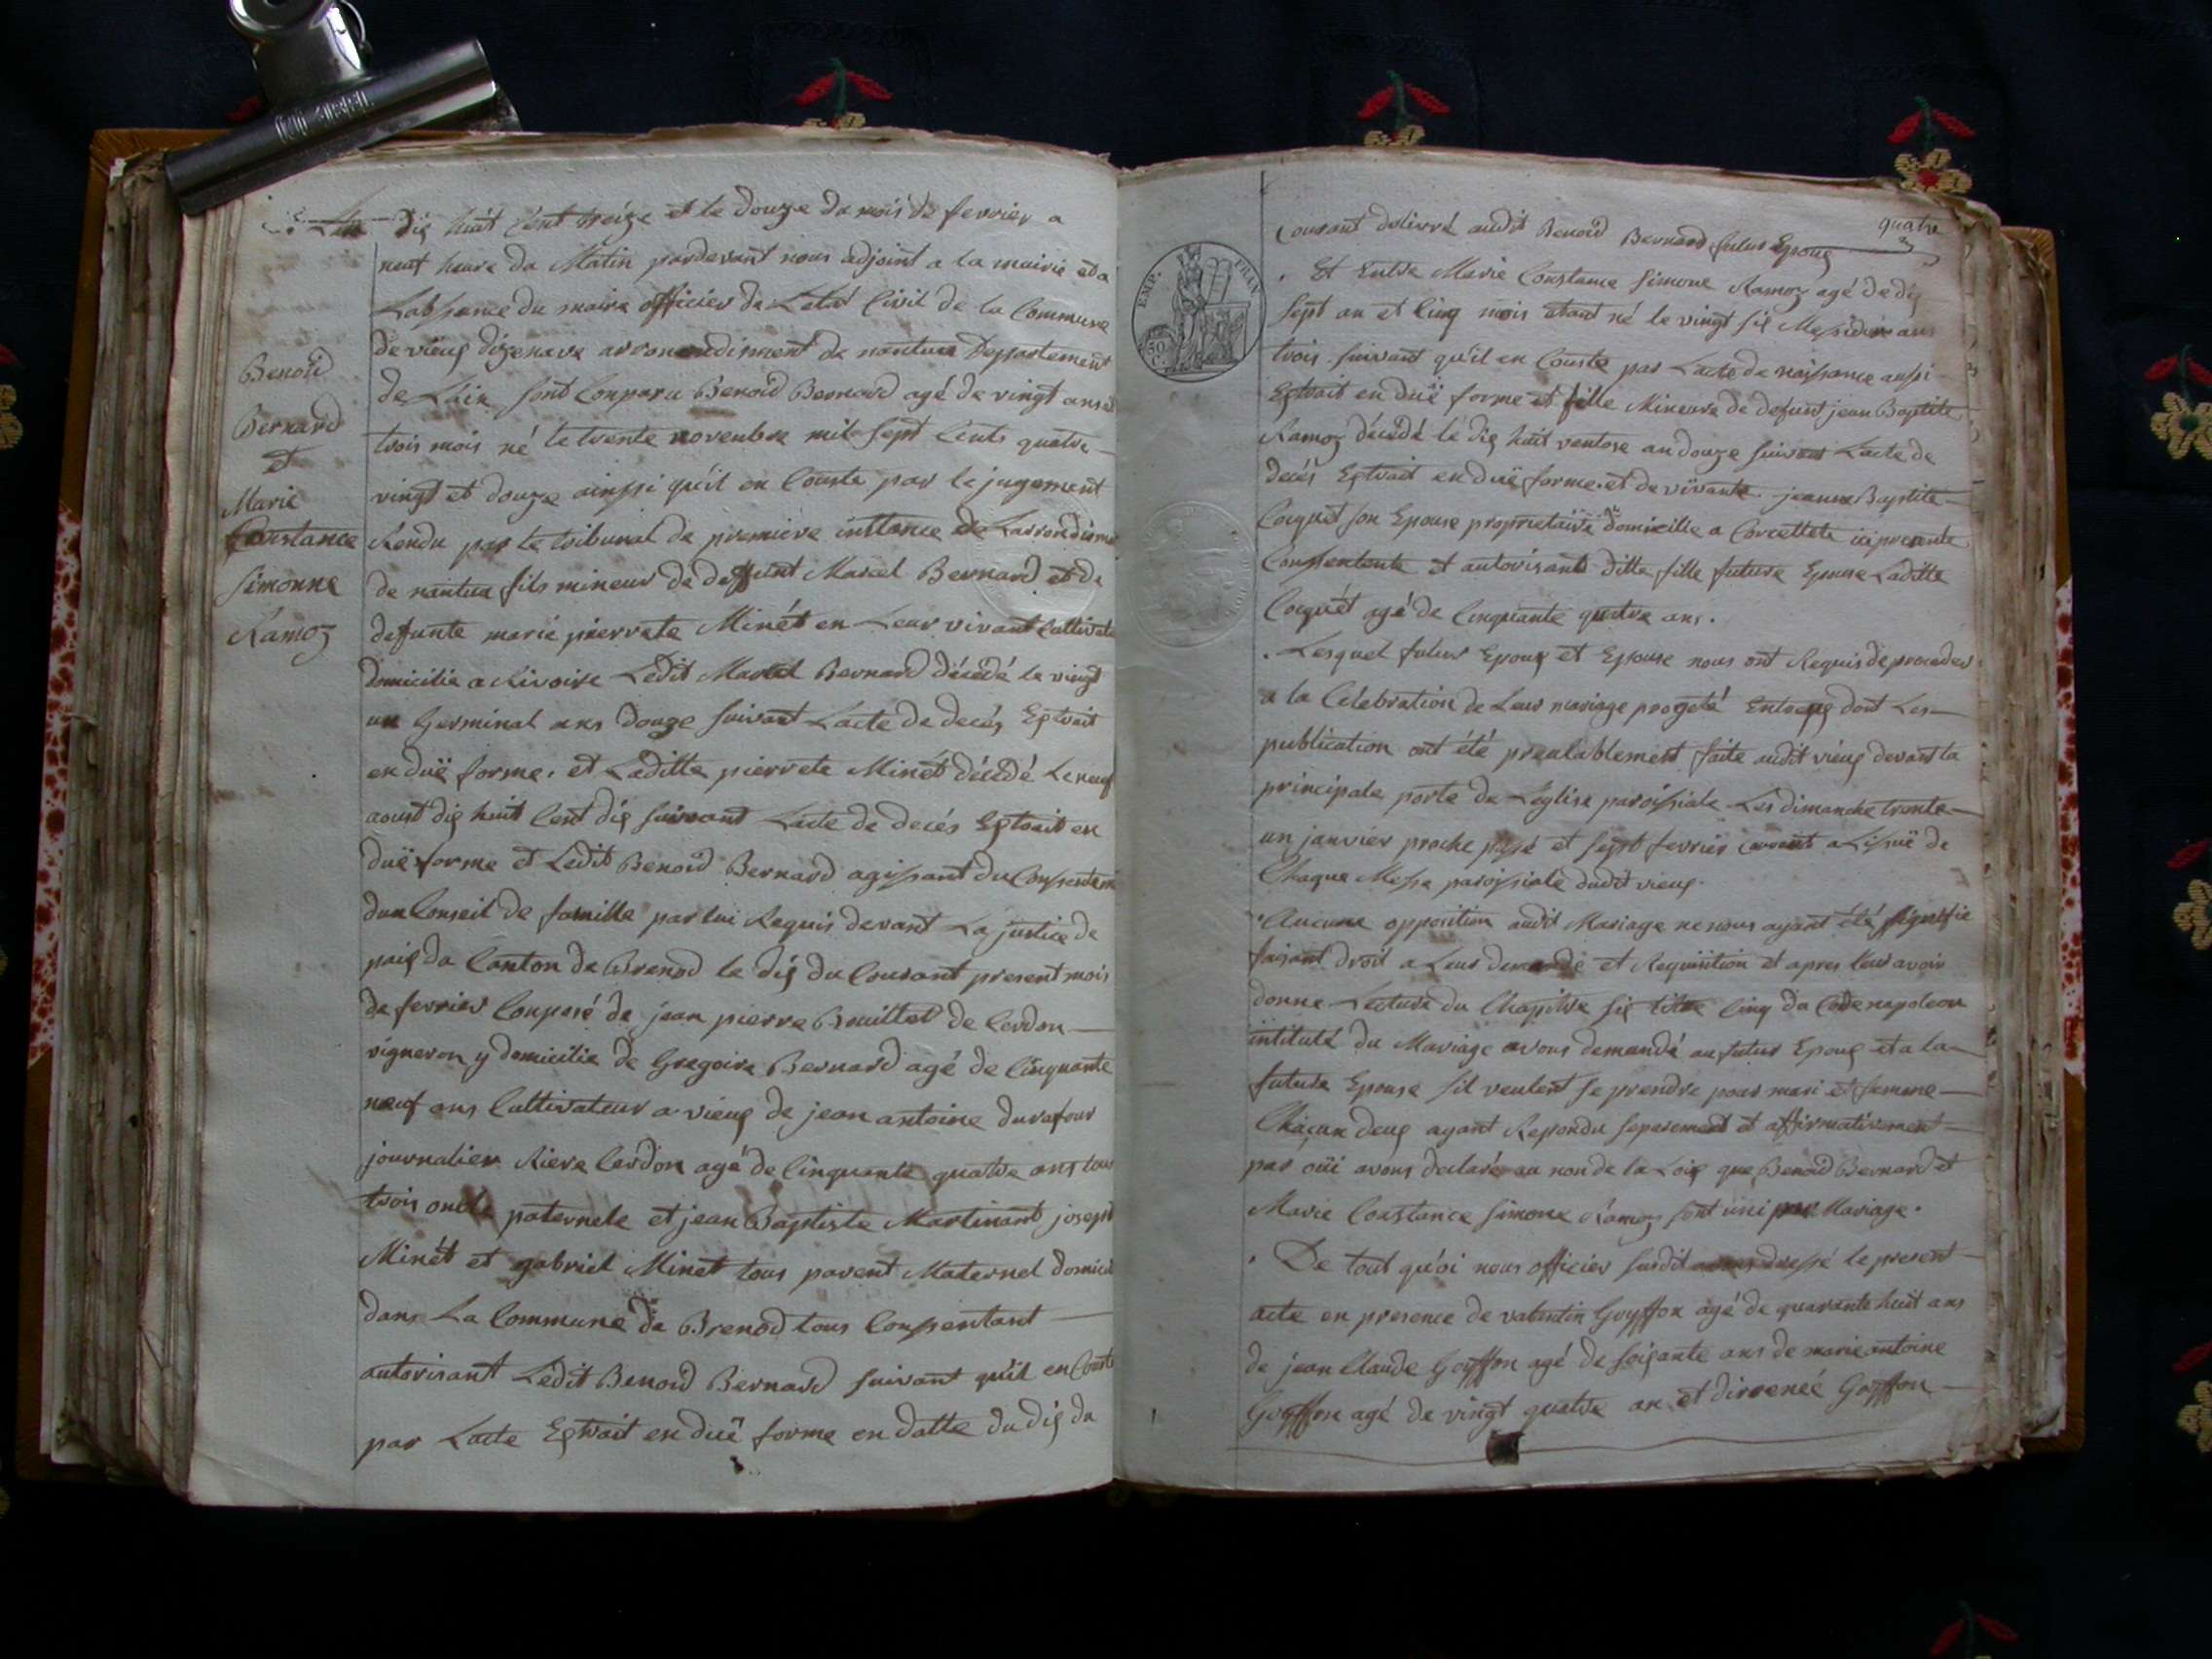 Lan dix huit cent treize et le douze du mois de fevrier a
neuf heure du Matin pardevant nous adjoint a la mairie et a
Labssance du maire officier de Letat Civil de la Commune
de vieux dizenave arronondisment de nantua Departement
de Lain sont Conparu Benoid Bernard agé de vingt ans et
trois mois né le trente novenbre mil sept Cents quatre
vingt et douze ainssi qu'il en Conste par le jugement
Rendu par le tribunal de premiere instance de Larrondisme
de nantua fils mineur de deffunt Marcel Bernard et de
defunte marie pierrete Minét en Leur vivant Cultivate
domicilie a Rivoire Ledit Marcel Bernard décédé le vingt
un Germinal ans douze suivant Lacte de decés Extrait
en duë forme. et Laditte pierrete Minét décédé Le neuf
aoust dix huit Cent dix suivant Lacte de decés Extrait en
duë forme et Ledit Benoid Bernard agissant du Conssentem
dun Conseil de famille par lui Requis devant La justice de
paix da Canton de Brenod le dix du Courant present mois
de fevrier Conposé de jean pierre Brouillet de Cerdon
vigneron y domicilie de Gregoire Bernard agé de Cinquante
neuf ans Cultivateur a vieux de jean antoine durafour
journalier Riere Cerdon agé de Cinquante quatre ans tous
trois oncle paternele et jean Baptiste Martinant joseph
Minét et gabriel Minét tous parent Maternel domicil
dans La Commune de Brenod tous Conssentant
autorisant Ledit Benoid Bernard suivant qu'il en Conste
par Lacte Extrait en duë forme en datte du dix du
Benoid
Bernard
et
Marie
Constance
Simonne
Ramoz
quatre
Courant delivré audit Benoid Bernard futur Epoux
EMP. FRAN
50 C.
. Et Entre Marie Constance Simone Ramoz agé de dix
sept an et Cinq mois etant né le vingt six Messidor ans
trois suivant qu'il en Conste par Lacte de naissance aussi
Extrait en duë forme et fille Mineure de defunt jean Baptiste
Ramoz décédé le dix huit ventose an douze suivant Lacte de
decés Extrait en duë forme. et de vivante. jeanne Baptiste
Coquét son Epouse proprietaire domicilie a Corcellete ici presente
Conssentente et autorisant ditte fille future Epouse Laditte
Coquét agé de Cinquante quatre ans.
. Lesquel futur Epoux et Epouse nous ont Requis de proceder
a la Célebration de Leur mariage progeté Entreux dont Les
publication ont été prealablement faite audit vieux devant la
principale porte de Léglise paroissiale Les dimanche trente
un janvier proche passé et sept fevrier courant a Lissuë de
Chaque Messe paroissiale dudit vieux.
. Aucune opposition audit Mariage ne nous ayant été signifie
faisant droit a Leur demande et Requisition et apres leur avoir
donne Lecture du Chapitre six titre Cinq du Code napoleon
intitulé du Mariage avons demandé au futur Epoux et a la
future Epouse sil veulent se prendre pour mari et femme
Chacun deux ayant Repondu separement et affirmativement
par oüi avons declaré au non de la Loix que Benoid Bernard et
Marie Constance Simone Ramoz sont uni par Mariage.
. De tout qu'oi nous officier susdit avons dressé le present
acte en presence de valentin Goyffon agé de quarante huit ans
de jean Claude Goyffon agé de soixante ans de marie antoine
Goyffon agé de vingt quatre an et direneé Goyffon